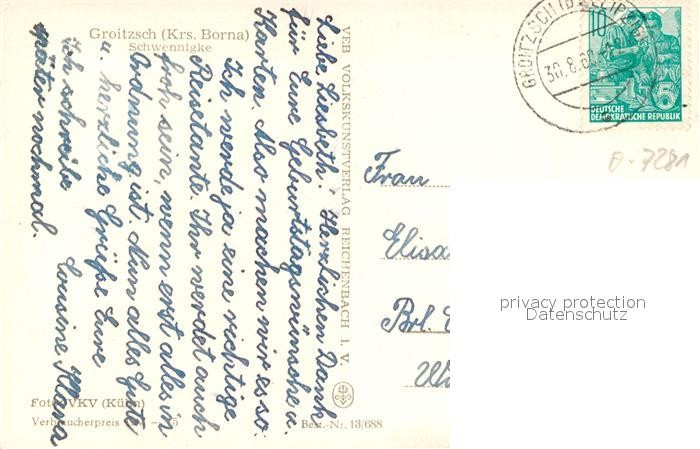 Groitzsch (Krs. Borna)
Schwennigke
Liebe Liesbeth. Herzlichen Dank
für Eure Geburtstagswünsche u.
Karten. Also machen wir es so.
Ich werde ja eine richtige
Reisetante. Ihr werdet auch
froh sein, wenn erst alles in
Ordnung ist. Nun alles Gute
u. herzliche Grüße Eure
Cousine Klara
Ich schreibe
später nochmal.
VEB VOLKSKUNSTVERLAG REICHENBACH i. V.
Foto: VKV (Kühn)
Verbraucherpreis
Best.-Nr. 13/688
GROITZSCH (BZ LEIPZIG)
30.8.60
10
5
DEUTSCHE
DEMOKRATISCHE REPUBLIK
0-7281
Frau
Elisa
Brl.
privacy protection
Datenschutz